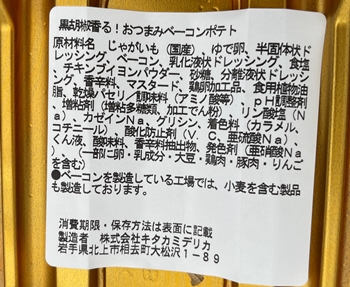 黒胡椒香る！おつまみベーコンポテト
原材料名 じゃがいも（国産）、ゆで卵、半固体状ド
レッシング、ベーコン、乳化液状ドレッシング、食塩
、チキンブイヨンパウダー、砂糖、分離液状ドレッシ
ング、香辛料、マスタード、鶏卵加工品、食用植物油
脂、乾燥パセリ／調味料（アミノ酸等）、ｐＨ調整剤
、増粘剤（増粘多糖類、加工でん粉）、リン酸塩（Ｎ
ａ）、カゼインＮａ、グリシン、着色料（カラメル、
コチニール）、酸化防止剤（Ｖ．Ｃ、亜硫酸Ｎａ）、
くん液、酸味料、香辛料抽出物、発色剤（亜硝酸Ｎａ
）、（一部に卵・乳成分・大豆・鶏肉・豚肉・りんご
を含む）
●ベーコンを製造している工場では、小麦を含む製品
も製造しております。
消費期限・保存方法は表面に記載
製造者 株式会社キタカミデリカ
岩手県北上市相去町大松沢１－８９